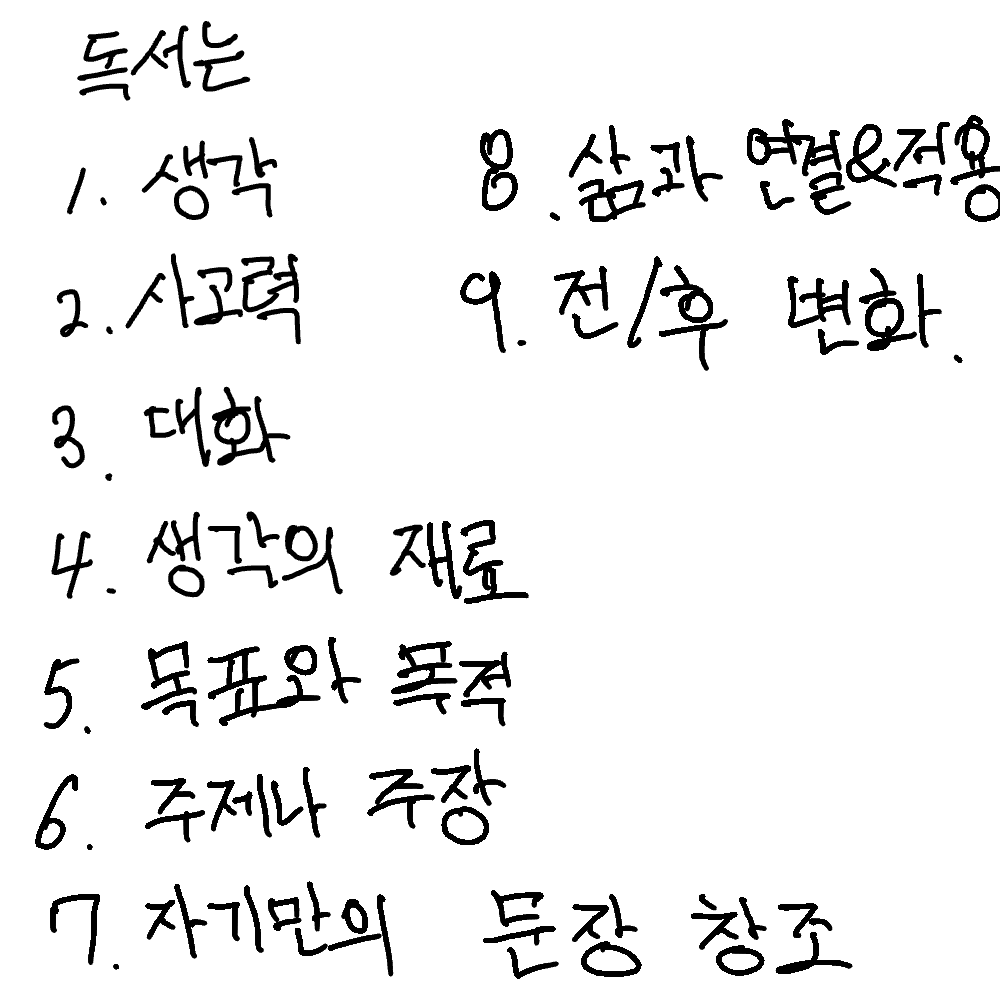 독서는
1. 생각
2. 사고력
3. 대화
4. 생각의 재료
5. 목표와 목적
6. 주제나 주장
7. 자기만의 문장 창조
8. 삶과 연결&적용
9. 전/후 변화.